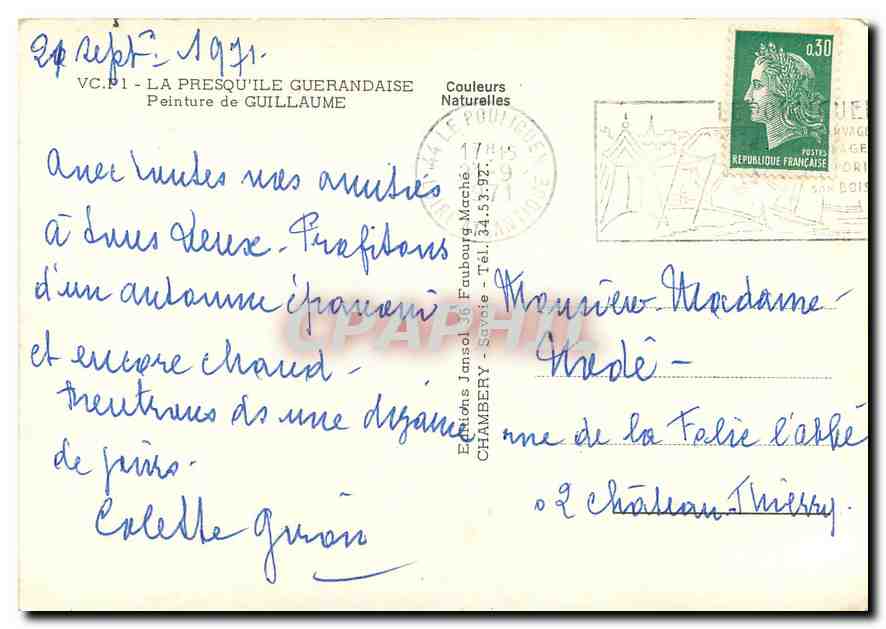 21 sept. 1971.
VC.P1 - LA PRESQU'ILE GUERANDAISE
Peinture de GUILLAUME
Couleurs
Naturelles
Avec toutes nos amitiés
à tous deux. Profitons
d'un automne épanoui
et encore chaud -
Rentrons ds une dizaine
de jours.
Colette
Editions Jansol 36 Faubourg Maché
CHAMBERY - Savoie - Tél. 34.53.92.
44 LE POULIGUEN
17H15
-9
71
LOIRE ATLANTIQUE
0,30
POSTES
REPUBLIQUE FRANÇAISE
SON BOIS
CPAPHIL
Monsieur - Madame -
rue de la Folie l'abbé
02 Château-Thierry.